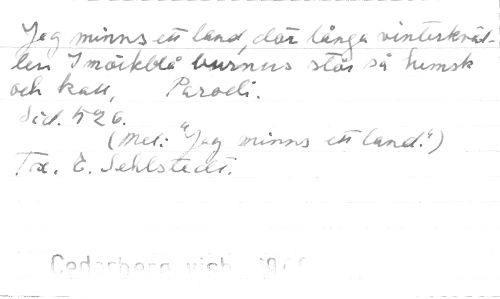 Jag minns ett land, där långa vinterkväl-
len I mörkblå burnus står så hemsk
och kall, Parodi.
Sid. 526.
(Mel: "Jag minns ett land.")
Tx. E. Sehlstedt.
Cederberg visb.